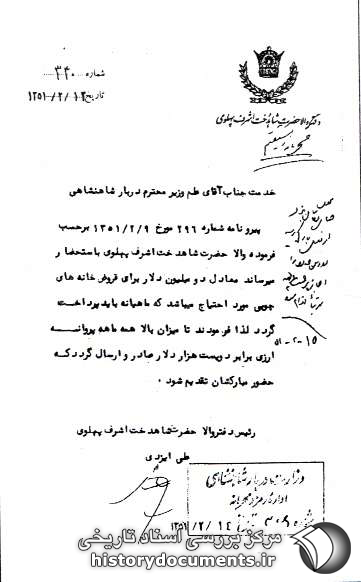 شماره ۳۴۰
تاریخ ۱۳۵۱/۲/۱۲
دفتر والاحضرت شاهدخت اشرف پهلوی
محرمانه مستقیم
خدمت جناب آقای علم وزیر محترم دربار شاهنشاهی
پیرو نامه شماره ۲۹۶ مورخ ۱۳۵۱/۲/۹ برحسب
فرموده والا حضرت شاهدخت اشرف پهلوی باستحضار
میرساند معادل دو میلیون دلار برای فروش خانه های
چوبی مورد احتیاج میباشد که ماهیانه باید پرداخت
گردد لذا فرمودند تا میزان بالا همه ماهه پروانه
ارزی برابر دویست هزار دلار صادر و ارسال گردد که
حضور مبارکشان تقدیم شود ۰
۱۵-۲-۵۱
رئیس دفتر والا حضرت شاهدخت اشرف پهلوی
علی ایزدی
وزارت دربار شاهنشاهی
اداره رمز و محرمانه
شماره ۳۰۸ تاریخ ۱۳۵۱/۲/۱۴
مرکز بررسی اسناد تاریخی
historydocuments.ir